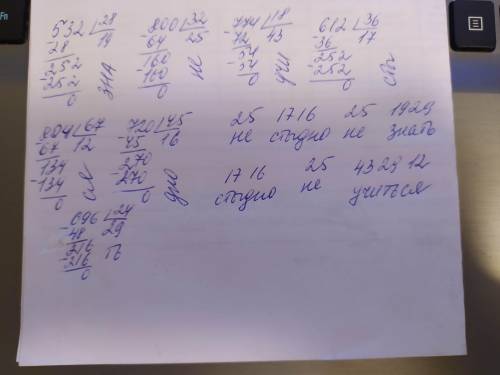 532 28
28 19
-252
252
0
зна
-800 32
64 25
-160
160
0
не
-774 18
72 43
-54
54
0
учи
612 36
-36 17
-252
-252
0
сты
-804 67
67 12
-134
-134
0
ся
-720 45
45 16
-270
-270
0
дно
25 1716 25 1929
не стыдно не знать
1716 25 432912
стыдно не учиться
-696 24
48 29
-216
-216
0
ть
Fn